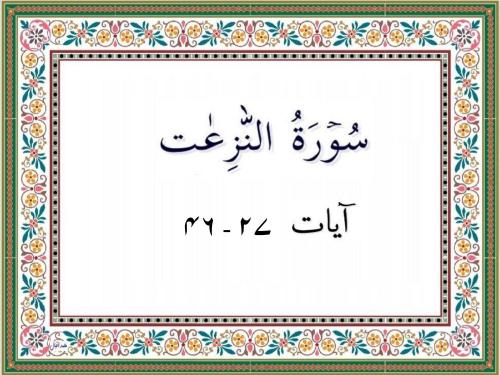 سُوْرَةُ النّٰزِعٰت
آیات ۲۷ - ۴۶